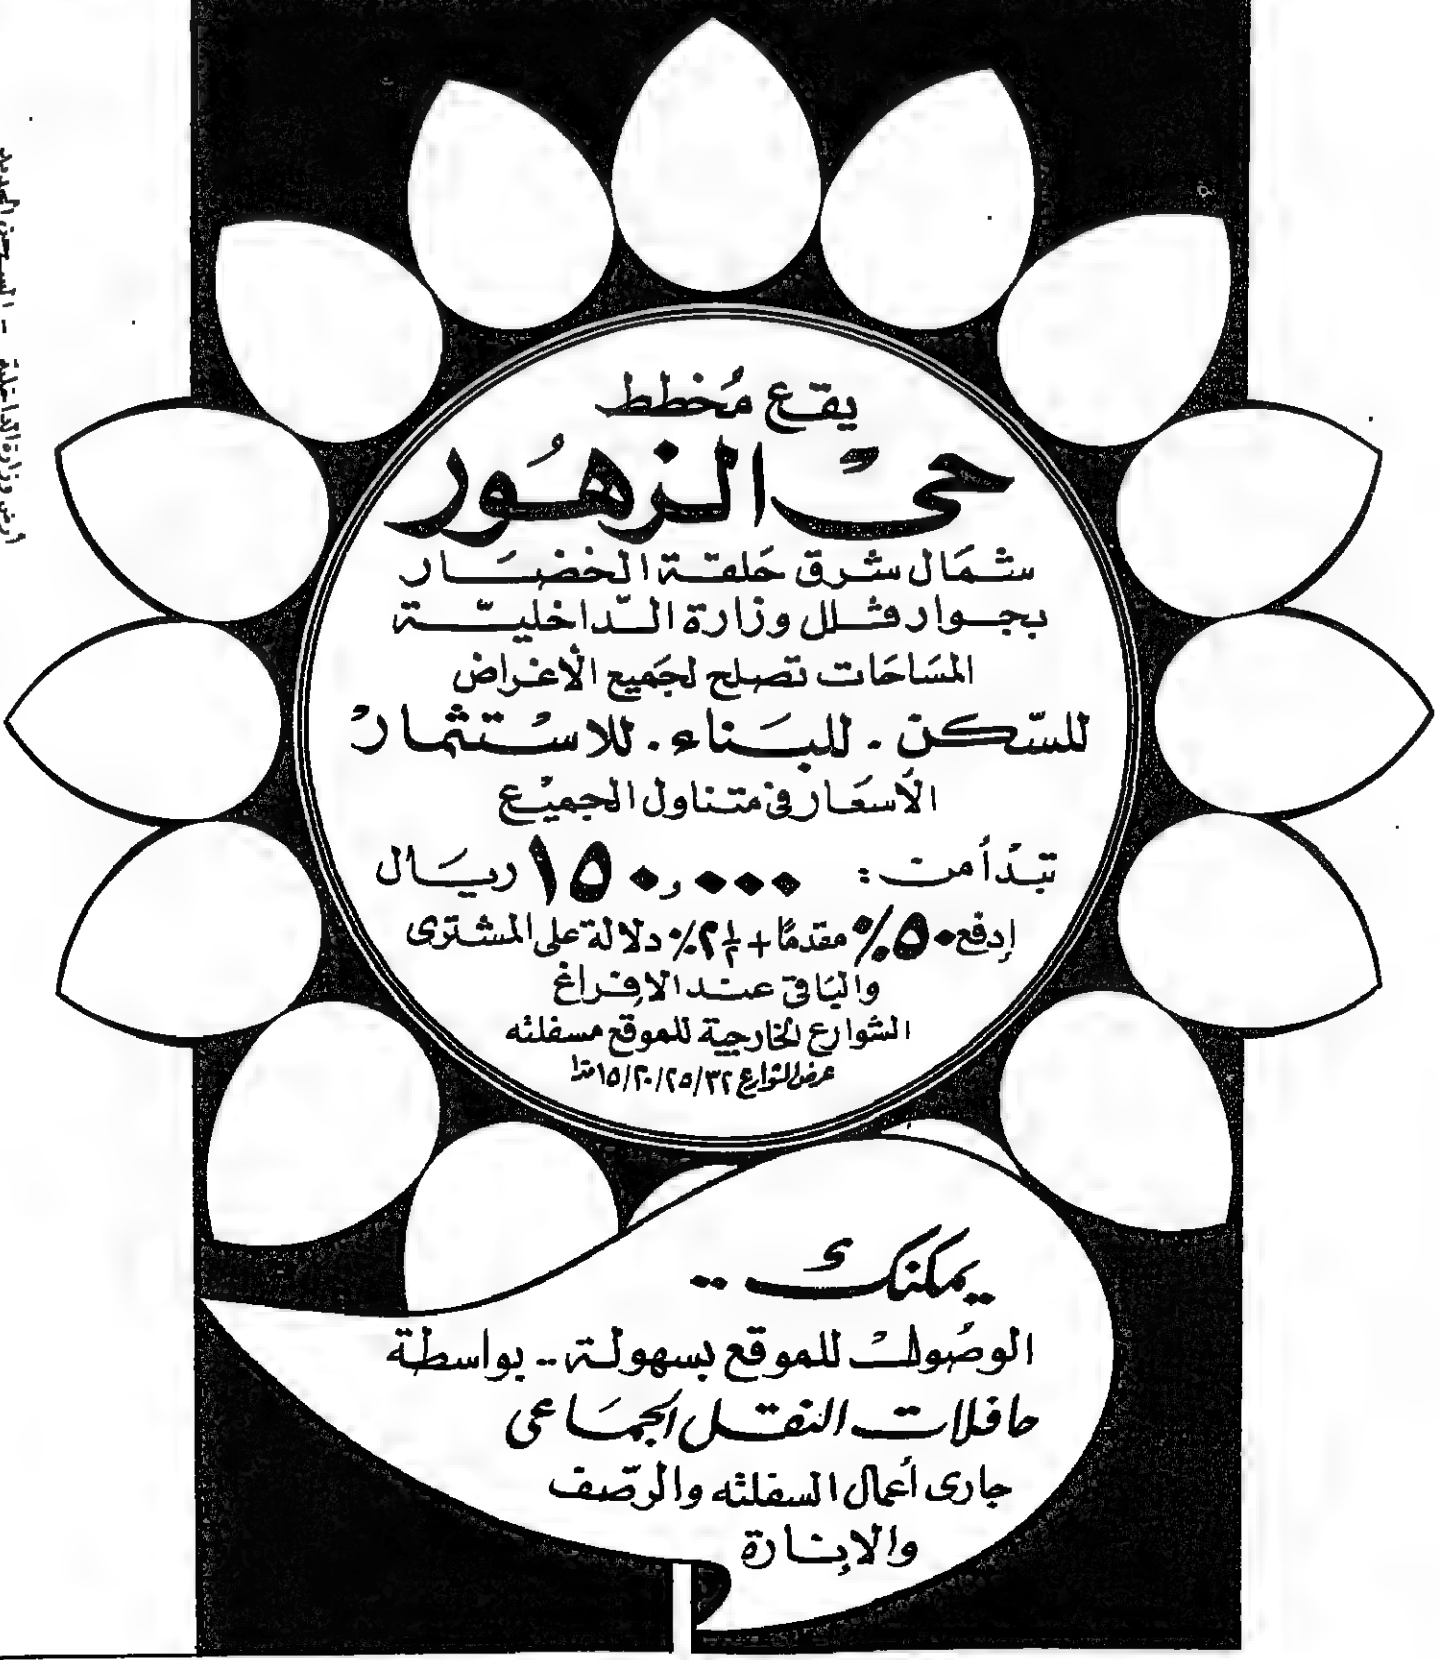 يقع مُخطط
حيْ الزهُور
شمَال شرق حَلقة الخضَار
بجوار فلل وزارة الدّاخليّة
المسَاحَات تصلح لجَميع الأغراض
للسّكن . للبَناء . للاسْتثمارْ
الأسعَار في متناول الجميْع
تبْدأ من : ١٥٠,٠٠٠ ريَال
إدفع ٥٠٪ مقدمًا + ٢½٪ دلالة على المشترى
والبَاقي عند الإفراغ
الشوارع الخارجية للموقع مسفلته
عرض الشوارع ١٥/٢٠/٢٥/٣٢ مترا
يمكنك ..
الوصُولْ للموقع بسهولة .. بواسطة
حافلات النقل الجمَاعى
جارى أعمال السفلته والرّصف
والإنارة